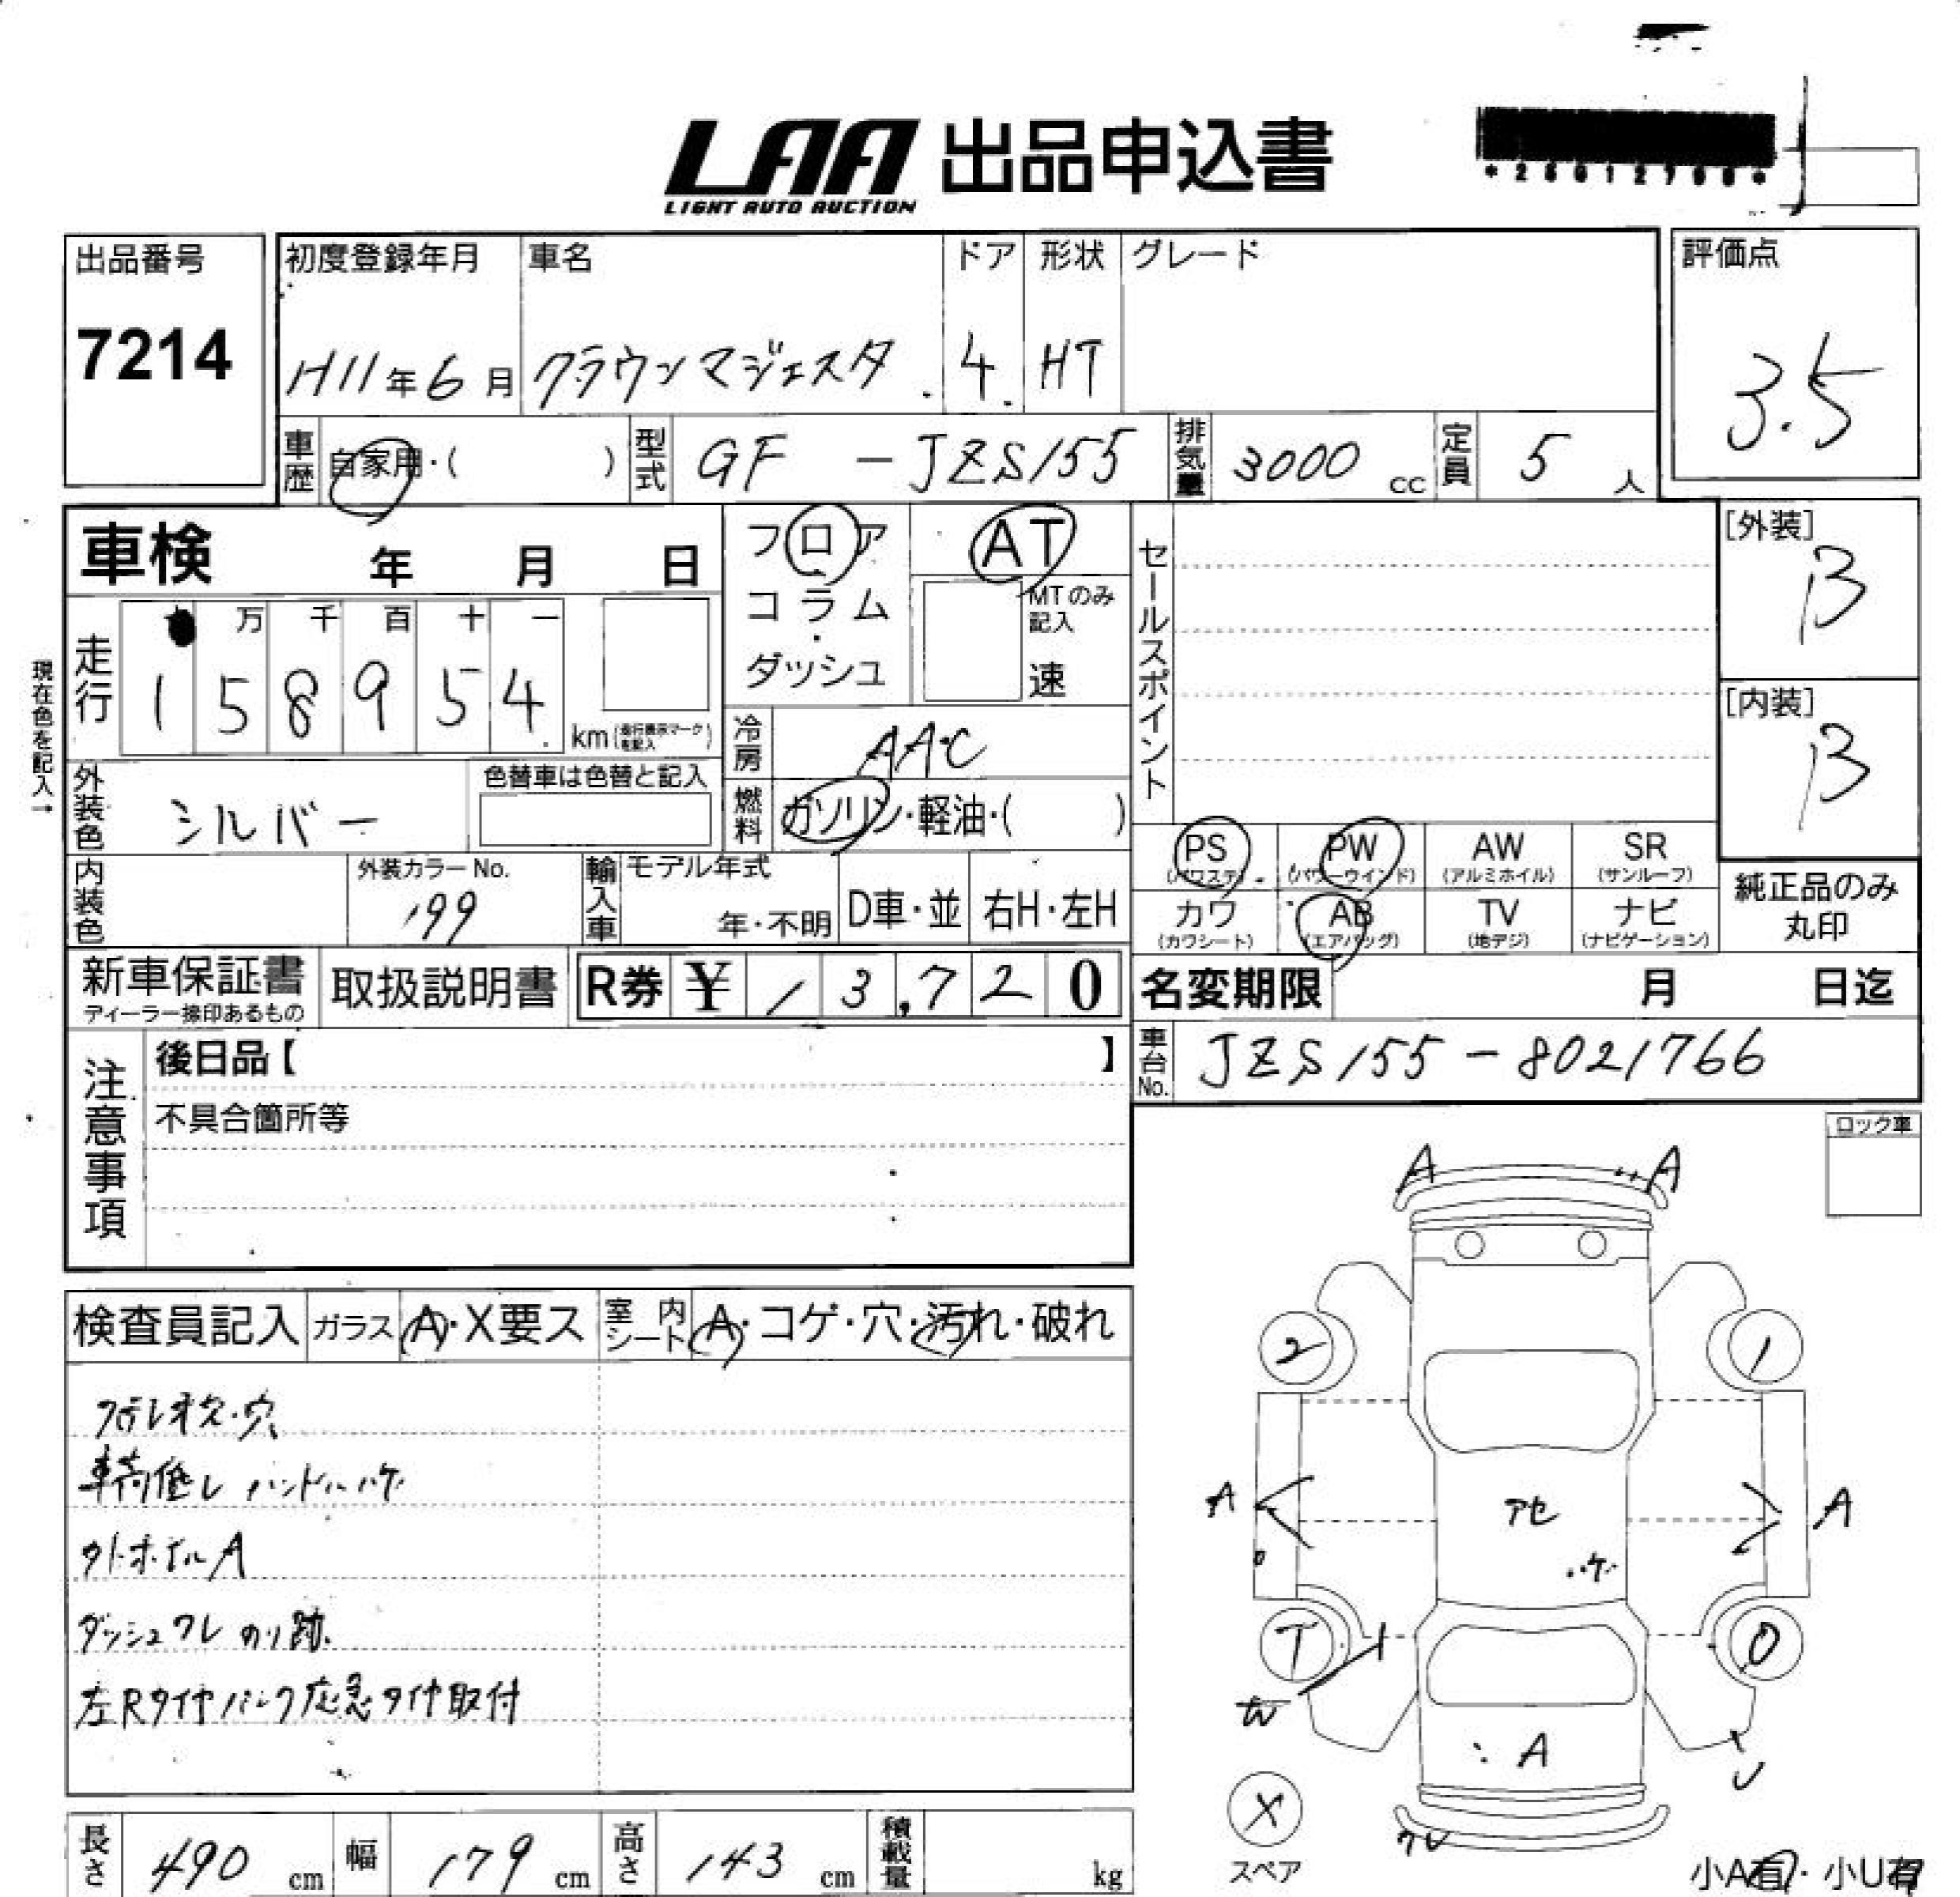 LAA 出品申込書
LIGHT AUTO AUCTION
出品番号
7214
初度登録年月
H11年6月
車名
クラウンマジェスタ
ドア
4
形状
HT
グレード
評価点
3.5
車歴 自家用・( )
型式 GF - JZS155
排気量 3000 cc
定員 5 人
車検 年 月 日
フロア
コラム
・
ダッシュ
AT
MTのみ
記入
速
セールスポイント
[外装]
B
[内装]
B
現在色を記入→
走行
万 千 百 十 一
1 5 8 9 5 4
km(走行表示マークを記入)
冷房 AAC
燃料 ガソリン・軽油・( )
外装色 シルバー
色替車は色替と記入
内装色
外装カラーNo.
199
輸入車
モデル年式
年・不明
D車・並
右H・左H
PS
(パワステ)
PW
(パワーウインド)
AW
(アルミホイル)
SR
(サンルーフ)
カワ
(カワシート)
AB
(エアバッグ)
TV
(地デジ)
ナビ
(ナビゲーション)
純正品のみ
丸印
新車保証書
ディーラー捺印あるもの
取扱説明書
R券 ¥ 13,720
名変期限 月 日迄
車台No. JZS155-8021766
注意事項
後日品【 】
不具合箇所等
ロック車
検査員記入
ガラス A・X要ス
室内シート A・コゲ・穴・汚れ・破れ
ステレオ欠・穴
車高低し ハンドルハゲ
外ホイルA
ダッシュワレ のり跡
左Rタイヤパンク応急タイヤ取付
A A
2 1
A アセ A
ハゲ
T 0
A
X
スペア
ワレ
小A有・小U有
長さ 490 cm
幅 179 cm
高さ 143 cm
積載量 kg